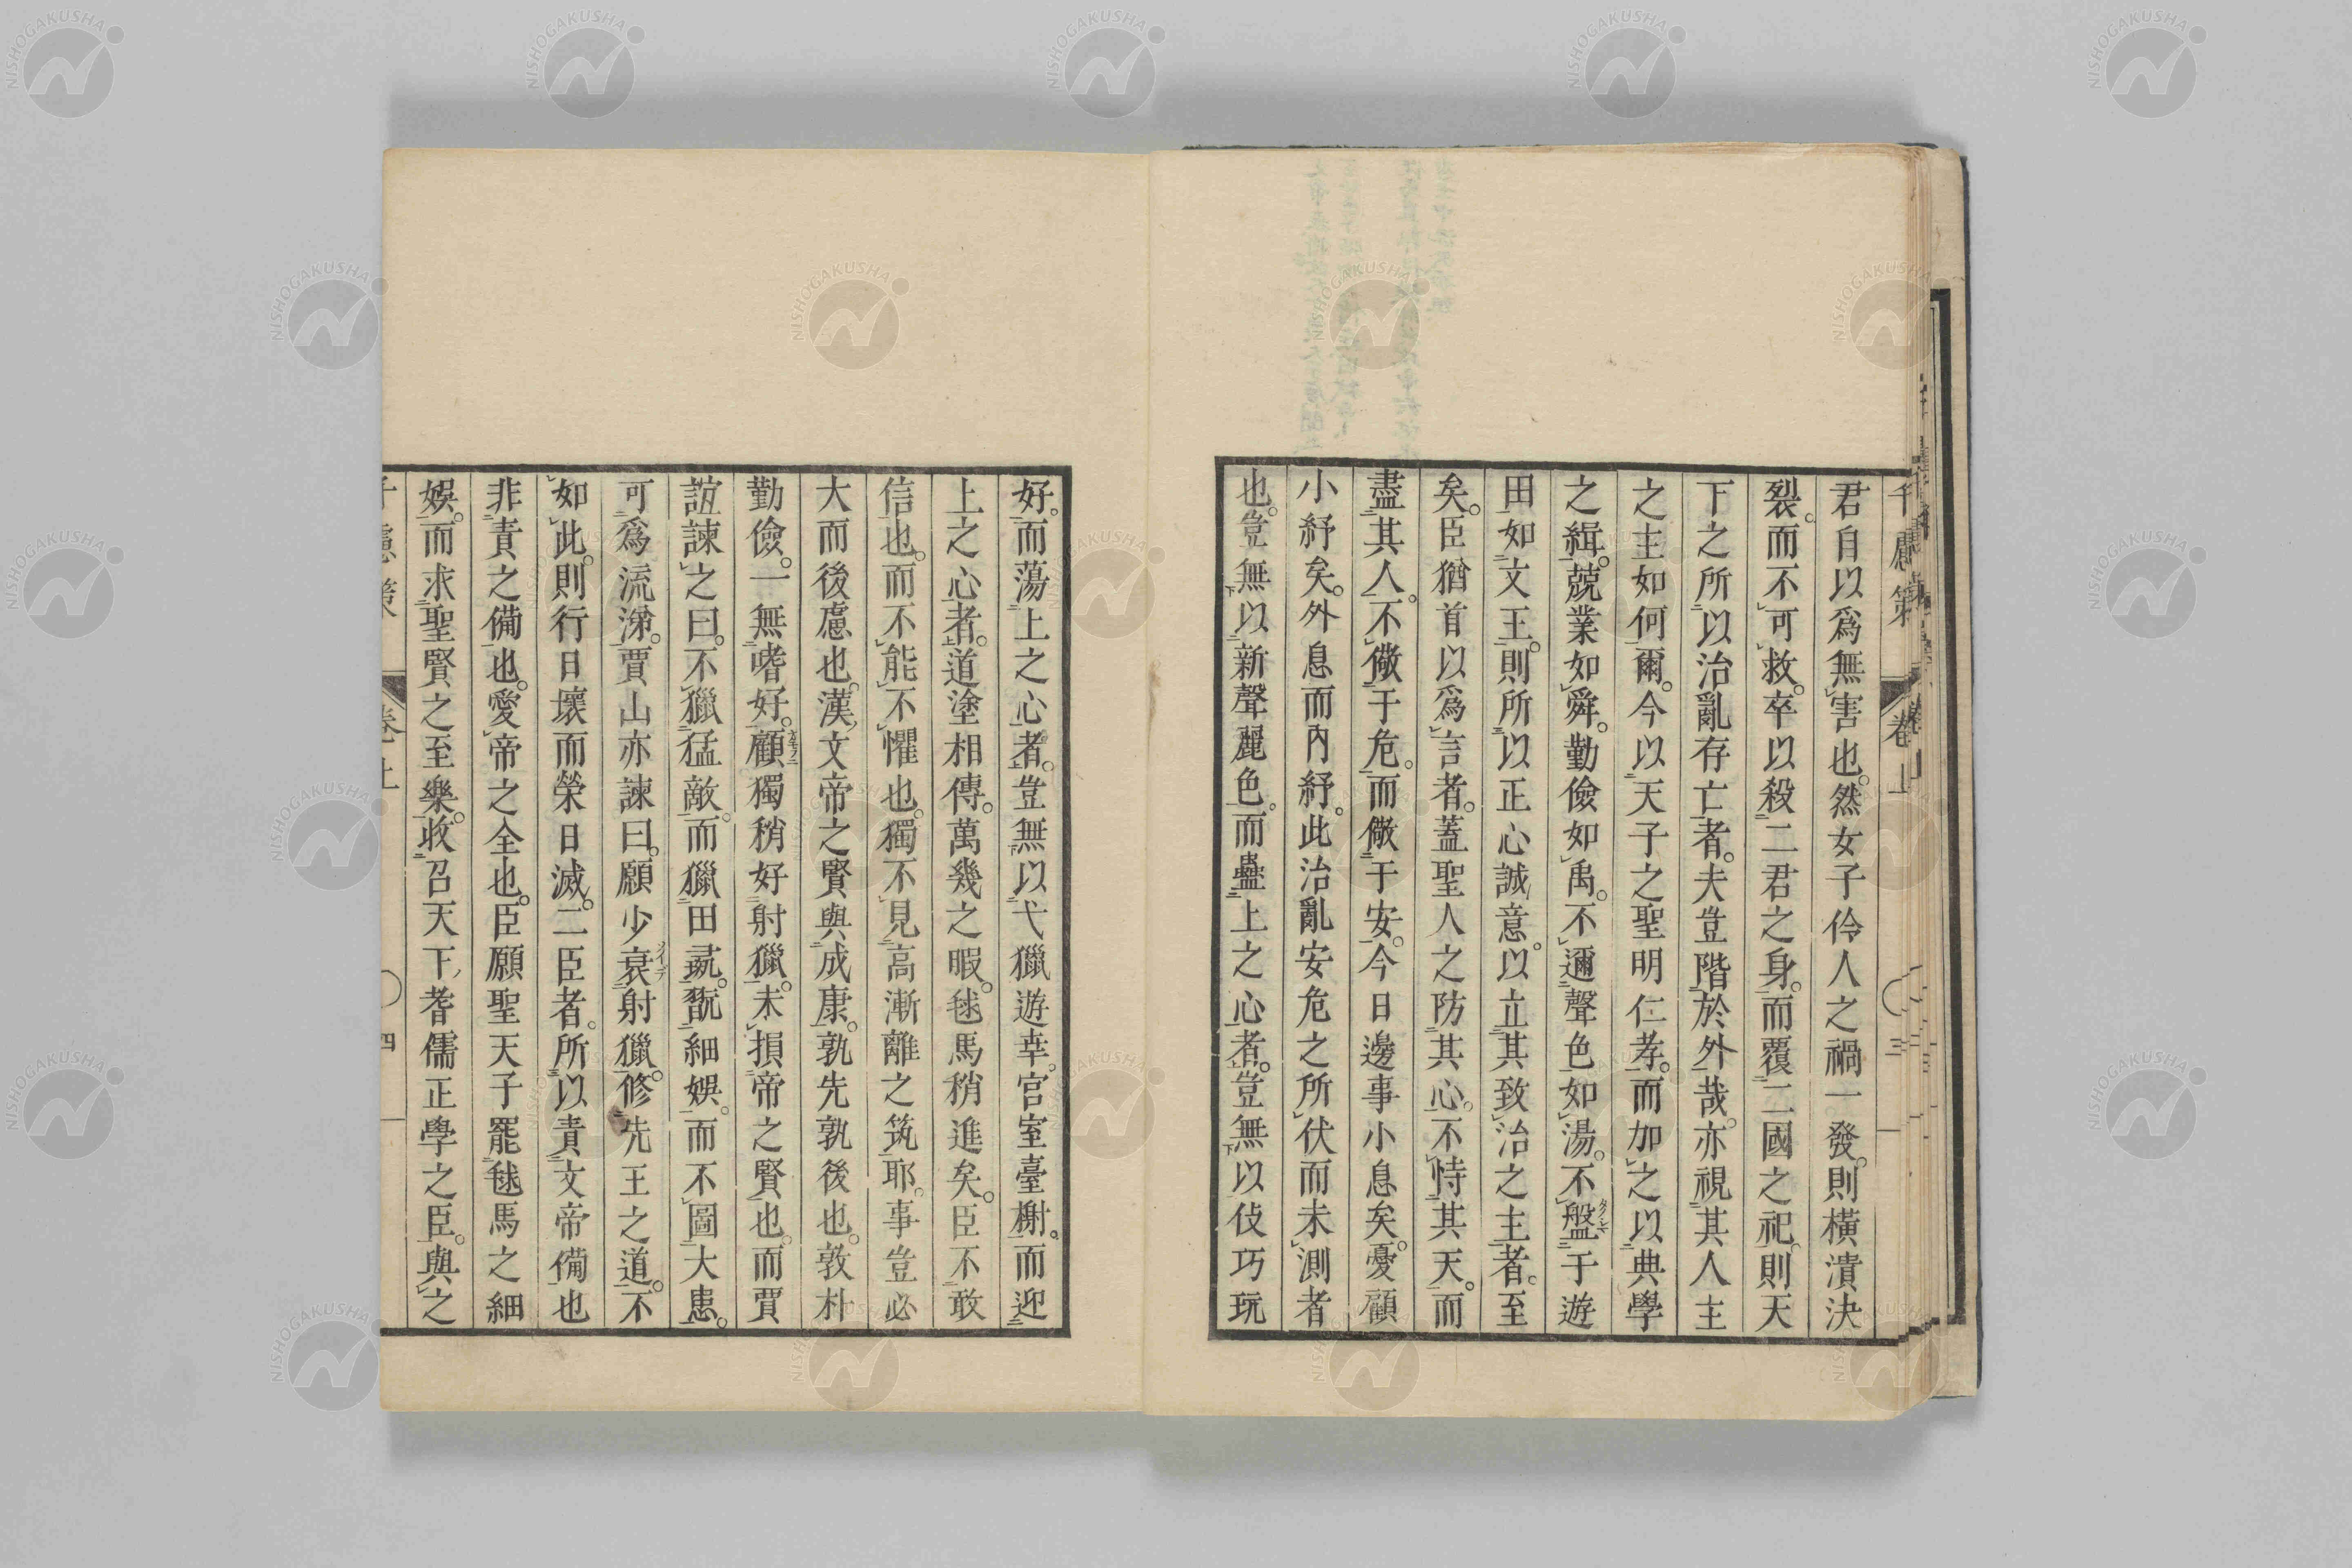 千慮策 卷上 三
君自以爲無害也。然女子伶人之禍一發。則橫潰決
裂。而不可救。卒以殺二君之身。而覆二國之祀。則天
下之所以治亂存亡者。夫豈階於外哉。亦視其人主
之主如何爾。今以天子之聖明仁孝。而加之以典學
之緝。兢業如舜。勤儉如禹。不邇聲色如湯。不盤于遊
田如文王。則所以正心誠意。以立其致治之主者。至
矣。臣猶首以爲言者。蓋聖人之防其心。不恃其天。而
盡其人。不儆于危。而儆于安。今日邊事小息矣。憂顧
小紓矣。外息而內紓。此治亂安危之所伏而未測者
也。豈無以新聲麗色。而蠱上之心者。豈無以伎巧玩
好。而蕩上之心者。豈無以弋獵遊幸。宮室臺榭。而迎
上之心者。道塗相傳。萬幾之暇。毬馬稍進矣。臣不敢
信也。而不能不懼也。獨不見高漸離之筑耶。事豈必
大而後慮也。漢文帝之賢與成康。孰先孰後也。敦朴
勤儉。一無嗜好。顧獨稍好射獵。未損帝之賢也。而賈
誼諫之曰。不獵猛敵。而獵田彘。翫細娛。而不圖大患。
可爲流涕。賈山亦諫曰。願少衰射獵。修先王之道。不
如此。則行日壞而榮日滅。二臣者。所以責文帝備也
非責之備也。愛帝之全也。臣願聖天子罷毬馬之細
娛。而求聖賢之至樂。收召天下耆儒正學之臣。與之
千慮策 卷上 四
NISHOGAKUSHA